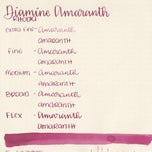 Diamine Amaranth
RHODIA
EXTRA FINE - Amaranth
AMARANTH
FINE - Amaranth
AMARANTH
MEDIUM - Amaranth
AMARANTH
BROAD - Amaranth
AMARANTH
FLEX - Amaranth
AMARANTH